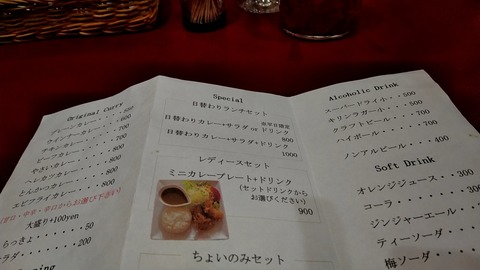 Original Curry
プレーンカレー・・・・・500
ウインナーカレー・・・600
チキンカレー・・・・・・700
ビーフカレー・・・・・・700
やさいカレー・・・・・・700
ヒレカツカレー・・・・
とんかつカレー・・・・
エビフライカレー・・・
甘口・中辛・辛口からお選び下さい)
大盛り+100yen
らっきょ・・・・・・50
ラダ・・・・・・・200
Special
日替わりランチセット
数量限定
日替わりカレー+サラダ or ドリンク
800
日替わりカレー+サラダ+ドリンク
1000
レディースセット
ミニカレープレート+ドリンク
(セットドリンクから
お選びください)
900
ちょいのみセット
Alcoholic Drink
スーパードライ・・・500
キリンラガー・・・・500
クラフトビール・・・700
ハイボール・・・・・700
ノンアルビール・・・400
Soft Drink
オレンジジュース・・300
コーラ・・・・・・・300
ジンジャーエール・・
ティーソーダ・・・・
梅ソーダ・・・・・